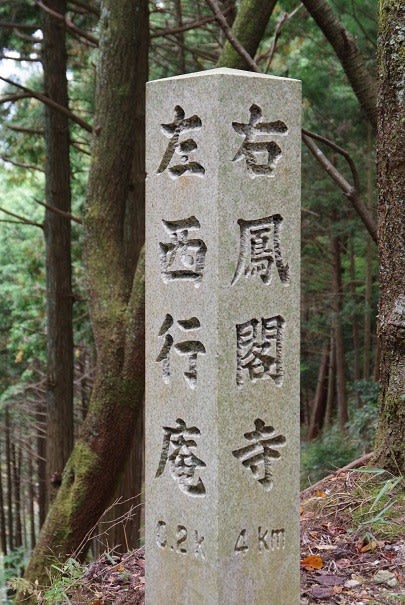 右鳳閣寺
4km
左西行庵
0.2k